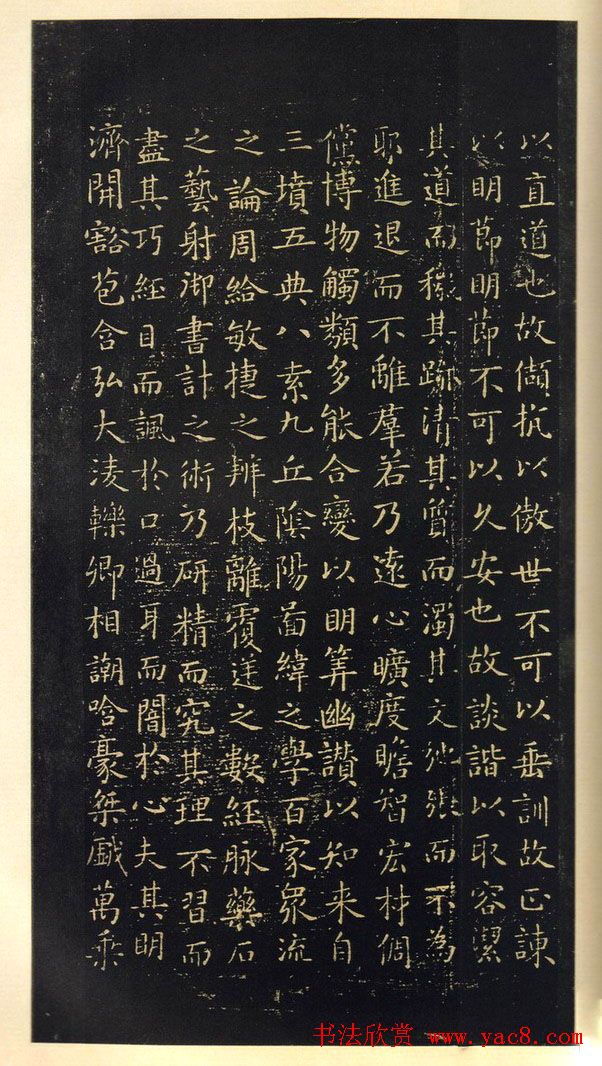 以直道也故傾抗以傲世不可以垂訓故正諫
以明節明節不可以久安也故談諧以取容潔
其道而穢其跡清其質而濁其文弛張而不為
耶進退而不離羣若乃遠心曠度瞻智宏材倜
儻博物觸類多能合變以明筭幽讃以知来自
三墳五典八素九丘陰陽啚緯之學百家衆流
之論周給敏捷之辨枝離覆逆之數經脉藥石
之藝射御書計之術乃研精而究其理不習而
盡其巧經目而諷於口過耳而闇於心夫其明
濟開豁苞含弘大淩轢卿相謿哈豪桀戱萬乘
书法欣赏 www.yac8.com